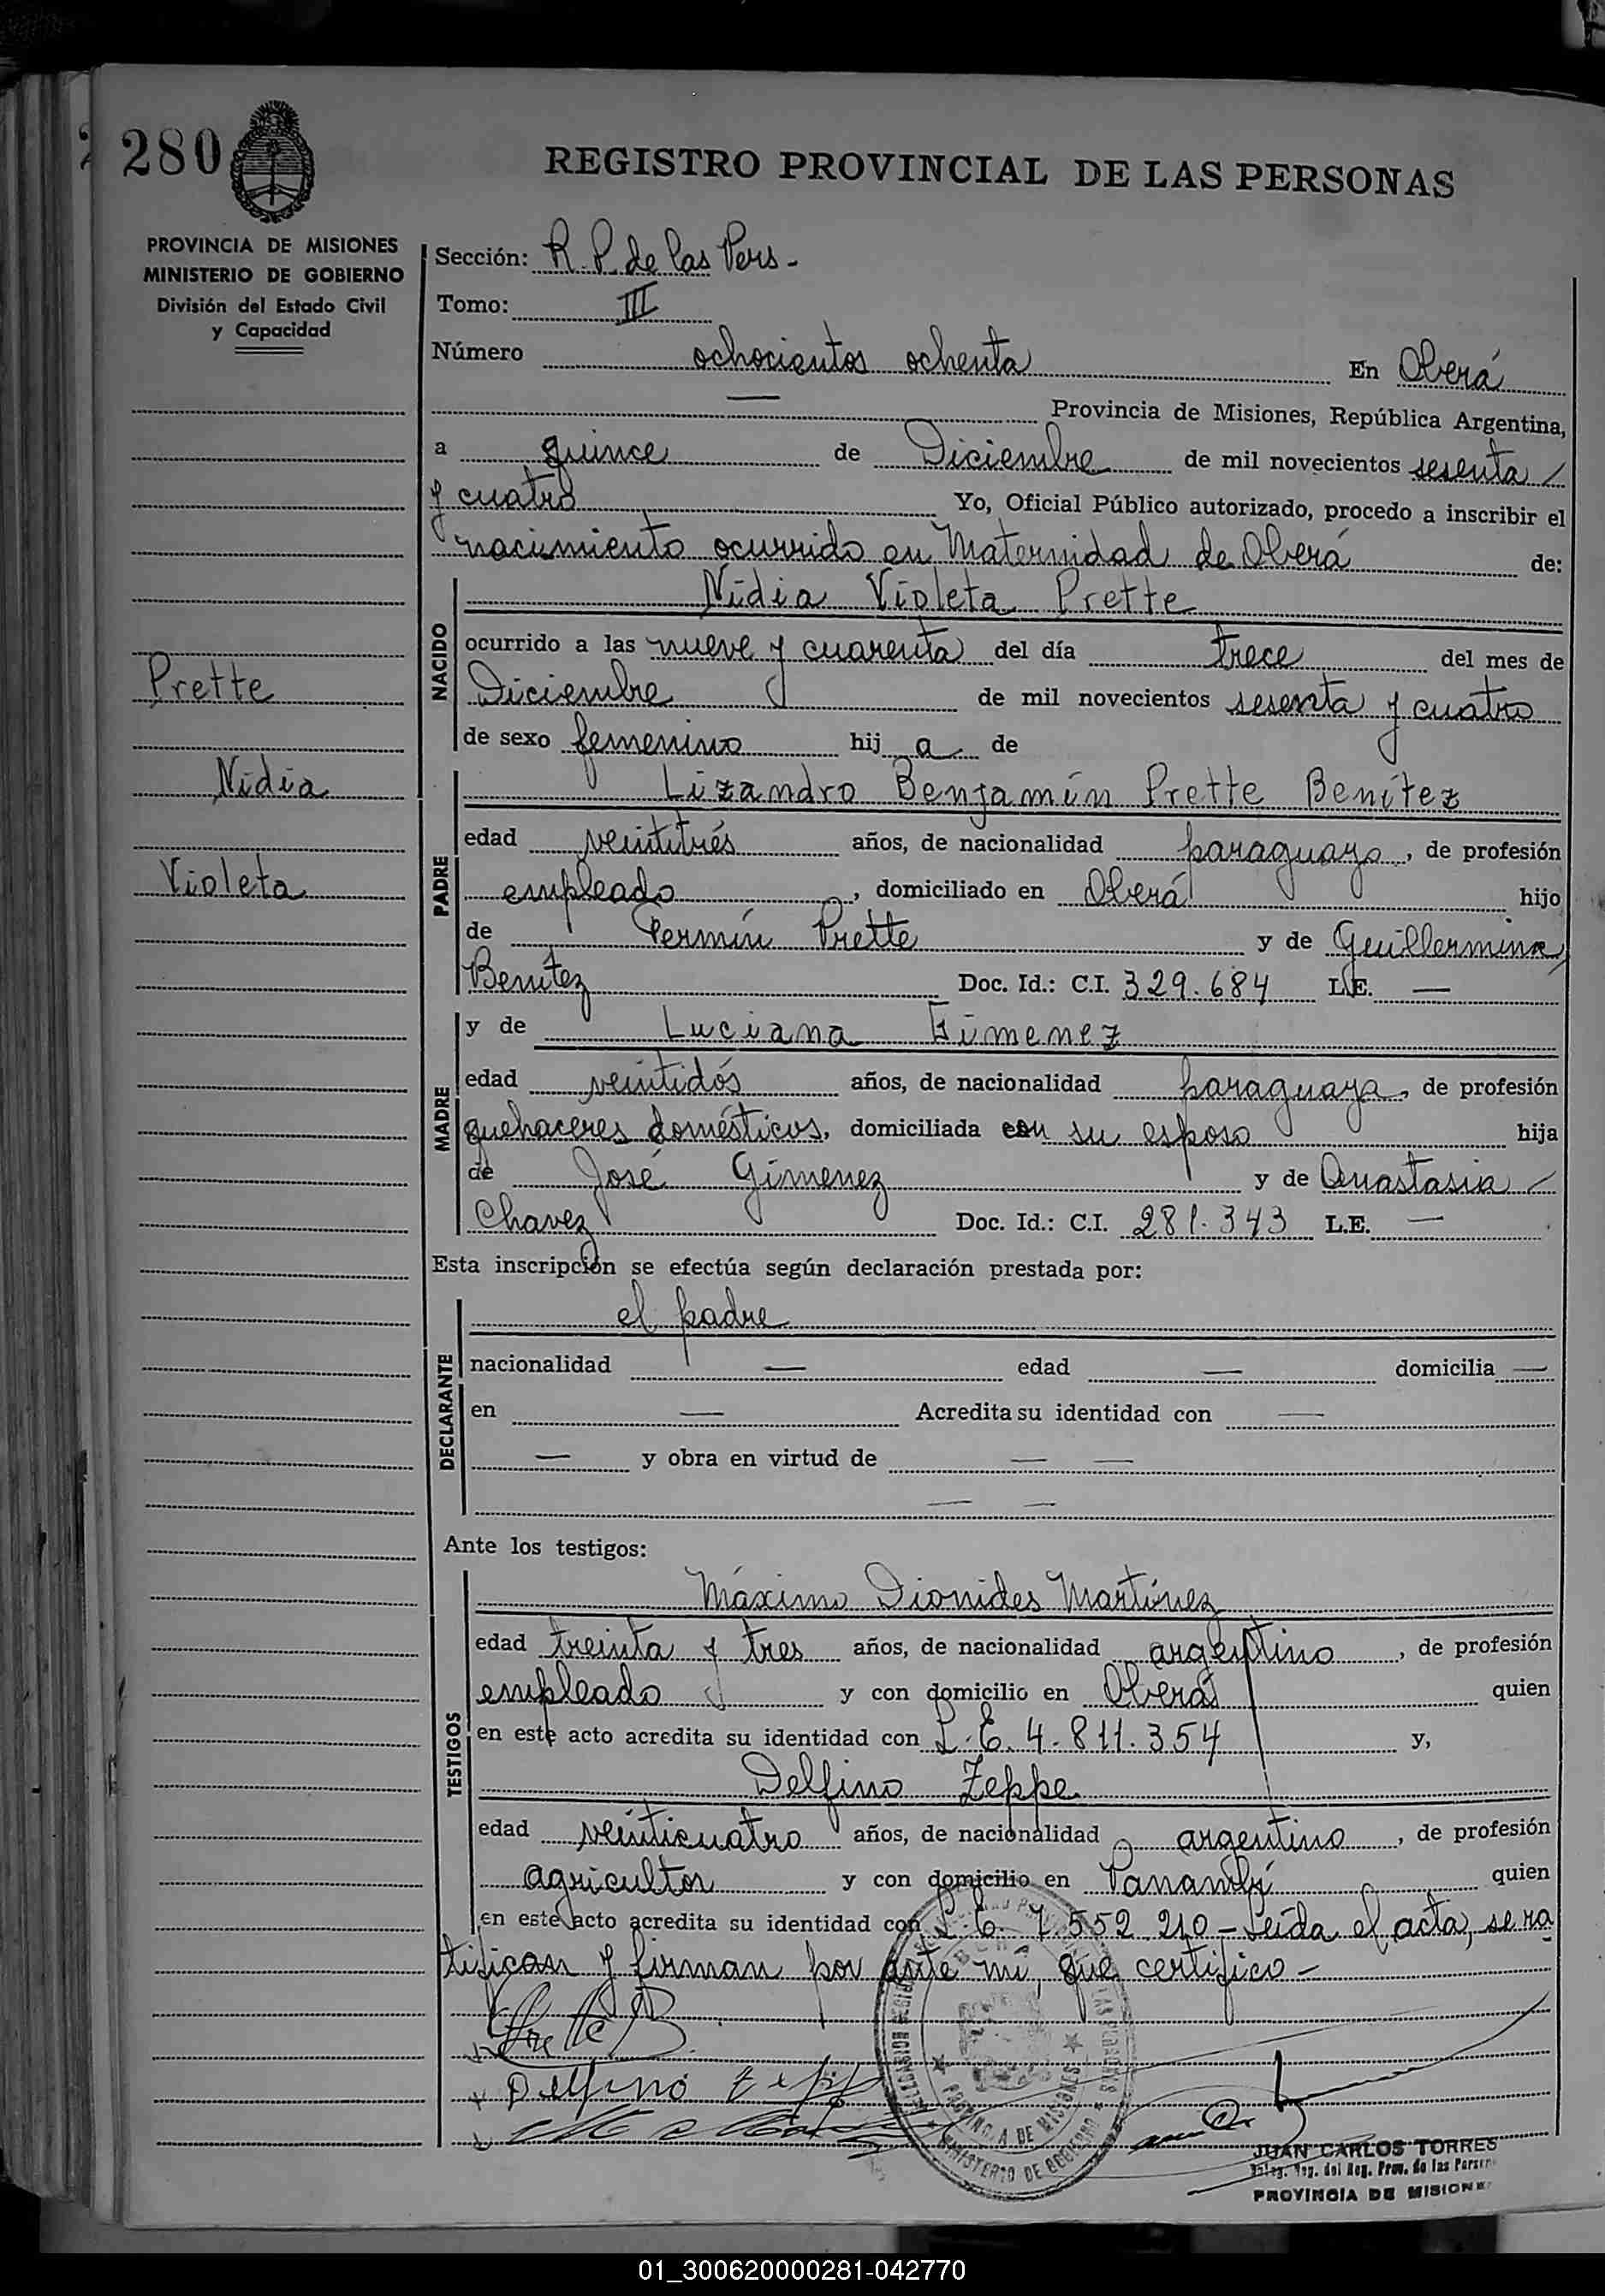 280
REGISTRO PROVINCIAL DE LAS PERSONAS
PROVINCIA DE MISIONES
MINISTERIO DE GOBIERNO
División del Estado Civil
y Capacidad
Prette
Nidia
Violeta
Sección: R. P. de las Pers.-
Tomo: III
Número ochocientos ochenta En Oberá
— Provincia de Misiones, República Argentina,
a quince de Diciembre de mil novecientos sesenta /
y cuatro Yo, Oficial Público autorizado, procedo a inscribir el
nacimiento ocurrido en Maternidad de Oberá de:
NACIDO
Nidia Violeta Prette
ocurrido a las nueve y cuarenta del día trece del mes de
Diciembre de mil novecientos sesenta y cuatro
de sexo femenino hij a de
PADRE
Lizandro Benjamín Prette Benítez
edad veintitrés años, de nacionalidad paraguayo, de profesión
empleado, domiciliado en Oberá hijo
de Fermín Prette y de Guillermina
Benítez Doc. Id.: C.I. 329.684 L.E. —
MADRE
y de Luciana Gimenez
edad veintidós años, de nacionalidad paraguaya, de profesión
quehaceres domésticos, domiciliada con su esposo hija
de José Gimenez y de Anastasia /
Chavez Doc. Id.: C.I. 281.343 L.E. —
Esta inscripción se efectúa según declaración prestada por:
DECLARANTE
el padre
nacionalidad — edad — domicilia —
en — Acredita su identidad con —
— y obra en virtud de — —
— —
Ante los testigos:
TESTIGOS
Máximo Dionides Martínez
edad treinta y tres años, de nacionalidad argentino, de profesión
empleado y con domicilio en Oberá quien
en este acto acredita su identidad con L.E. 4.811.354 y,
Delfino Zeppe
edad veinticuatro años, de nacionalidad argentino, de profesión
agricultor y con domicilio en Panambí quien
en este acto acredita su identidad con L.E. 7.552.210 - Leída el acta, se ra
tifican y firman por ante mí, que certifico -
Prette B.
Delfino Zepp
PROVINCIA DE MISIONES
MINISTERIO DE GOBIERNO
JUAN CARLOS TORRES
Reg. Prov. de las Person
PROVINCIA DE MISIONE
01_300620000281-042770